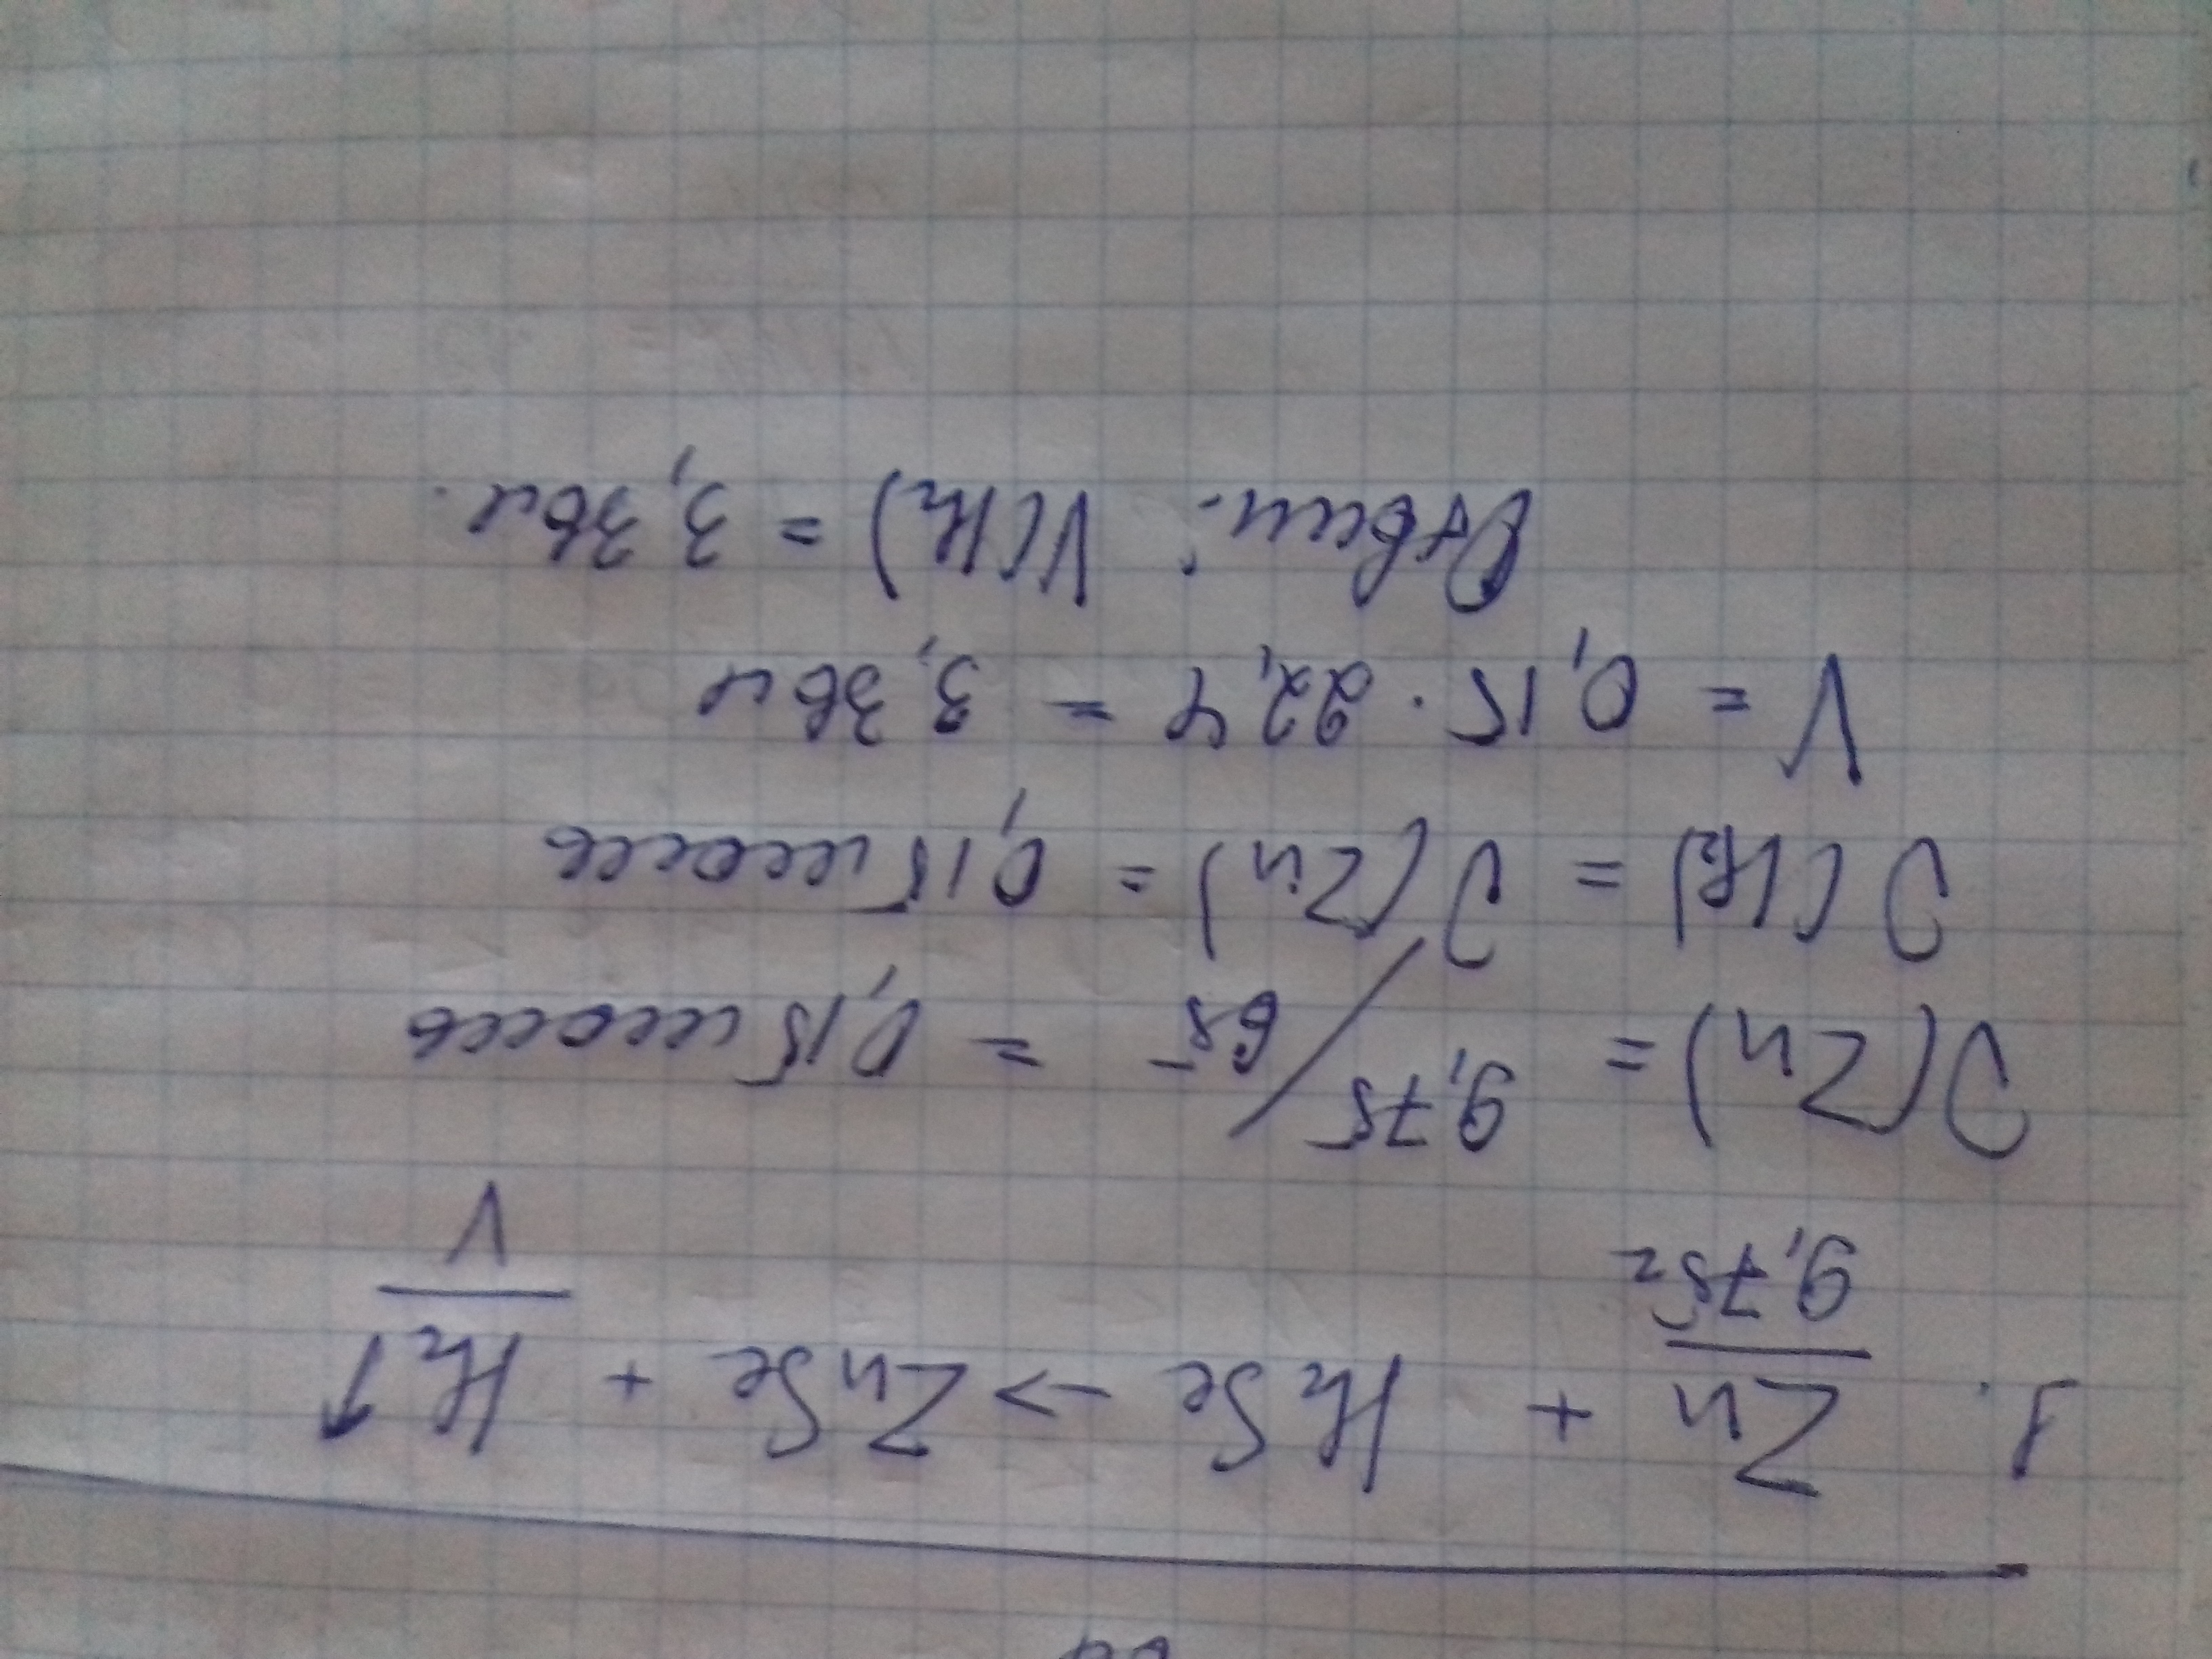 1. Zn + H₂Se -> ZnSe + H₂↑
9,75г V
ν(Zn) = 9,75/65 = 0,15 моль
ν(H₂) = ν(Zn) = 0,15 моль
V = 0,15 · 22,4 = 3,36 л
Ответ: V(H₂) = 3,36 л.